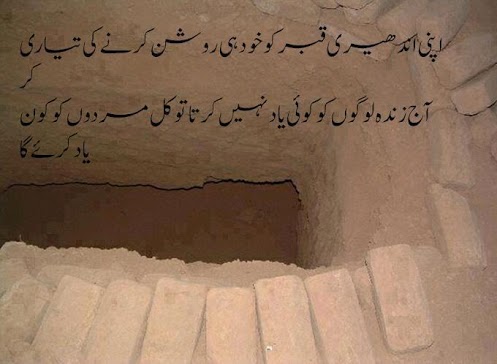 اپنی اندھیری قبر کو خود ہی روشن کرنے کی تیاری
کر
آج زندہ لوگوں کو کوئی یاد نہیں کرتا تو کل مردوں کو کون
یاد کرئے گا